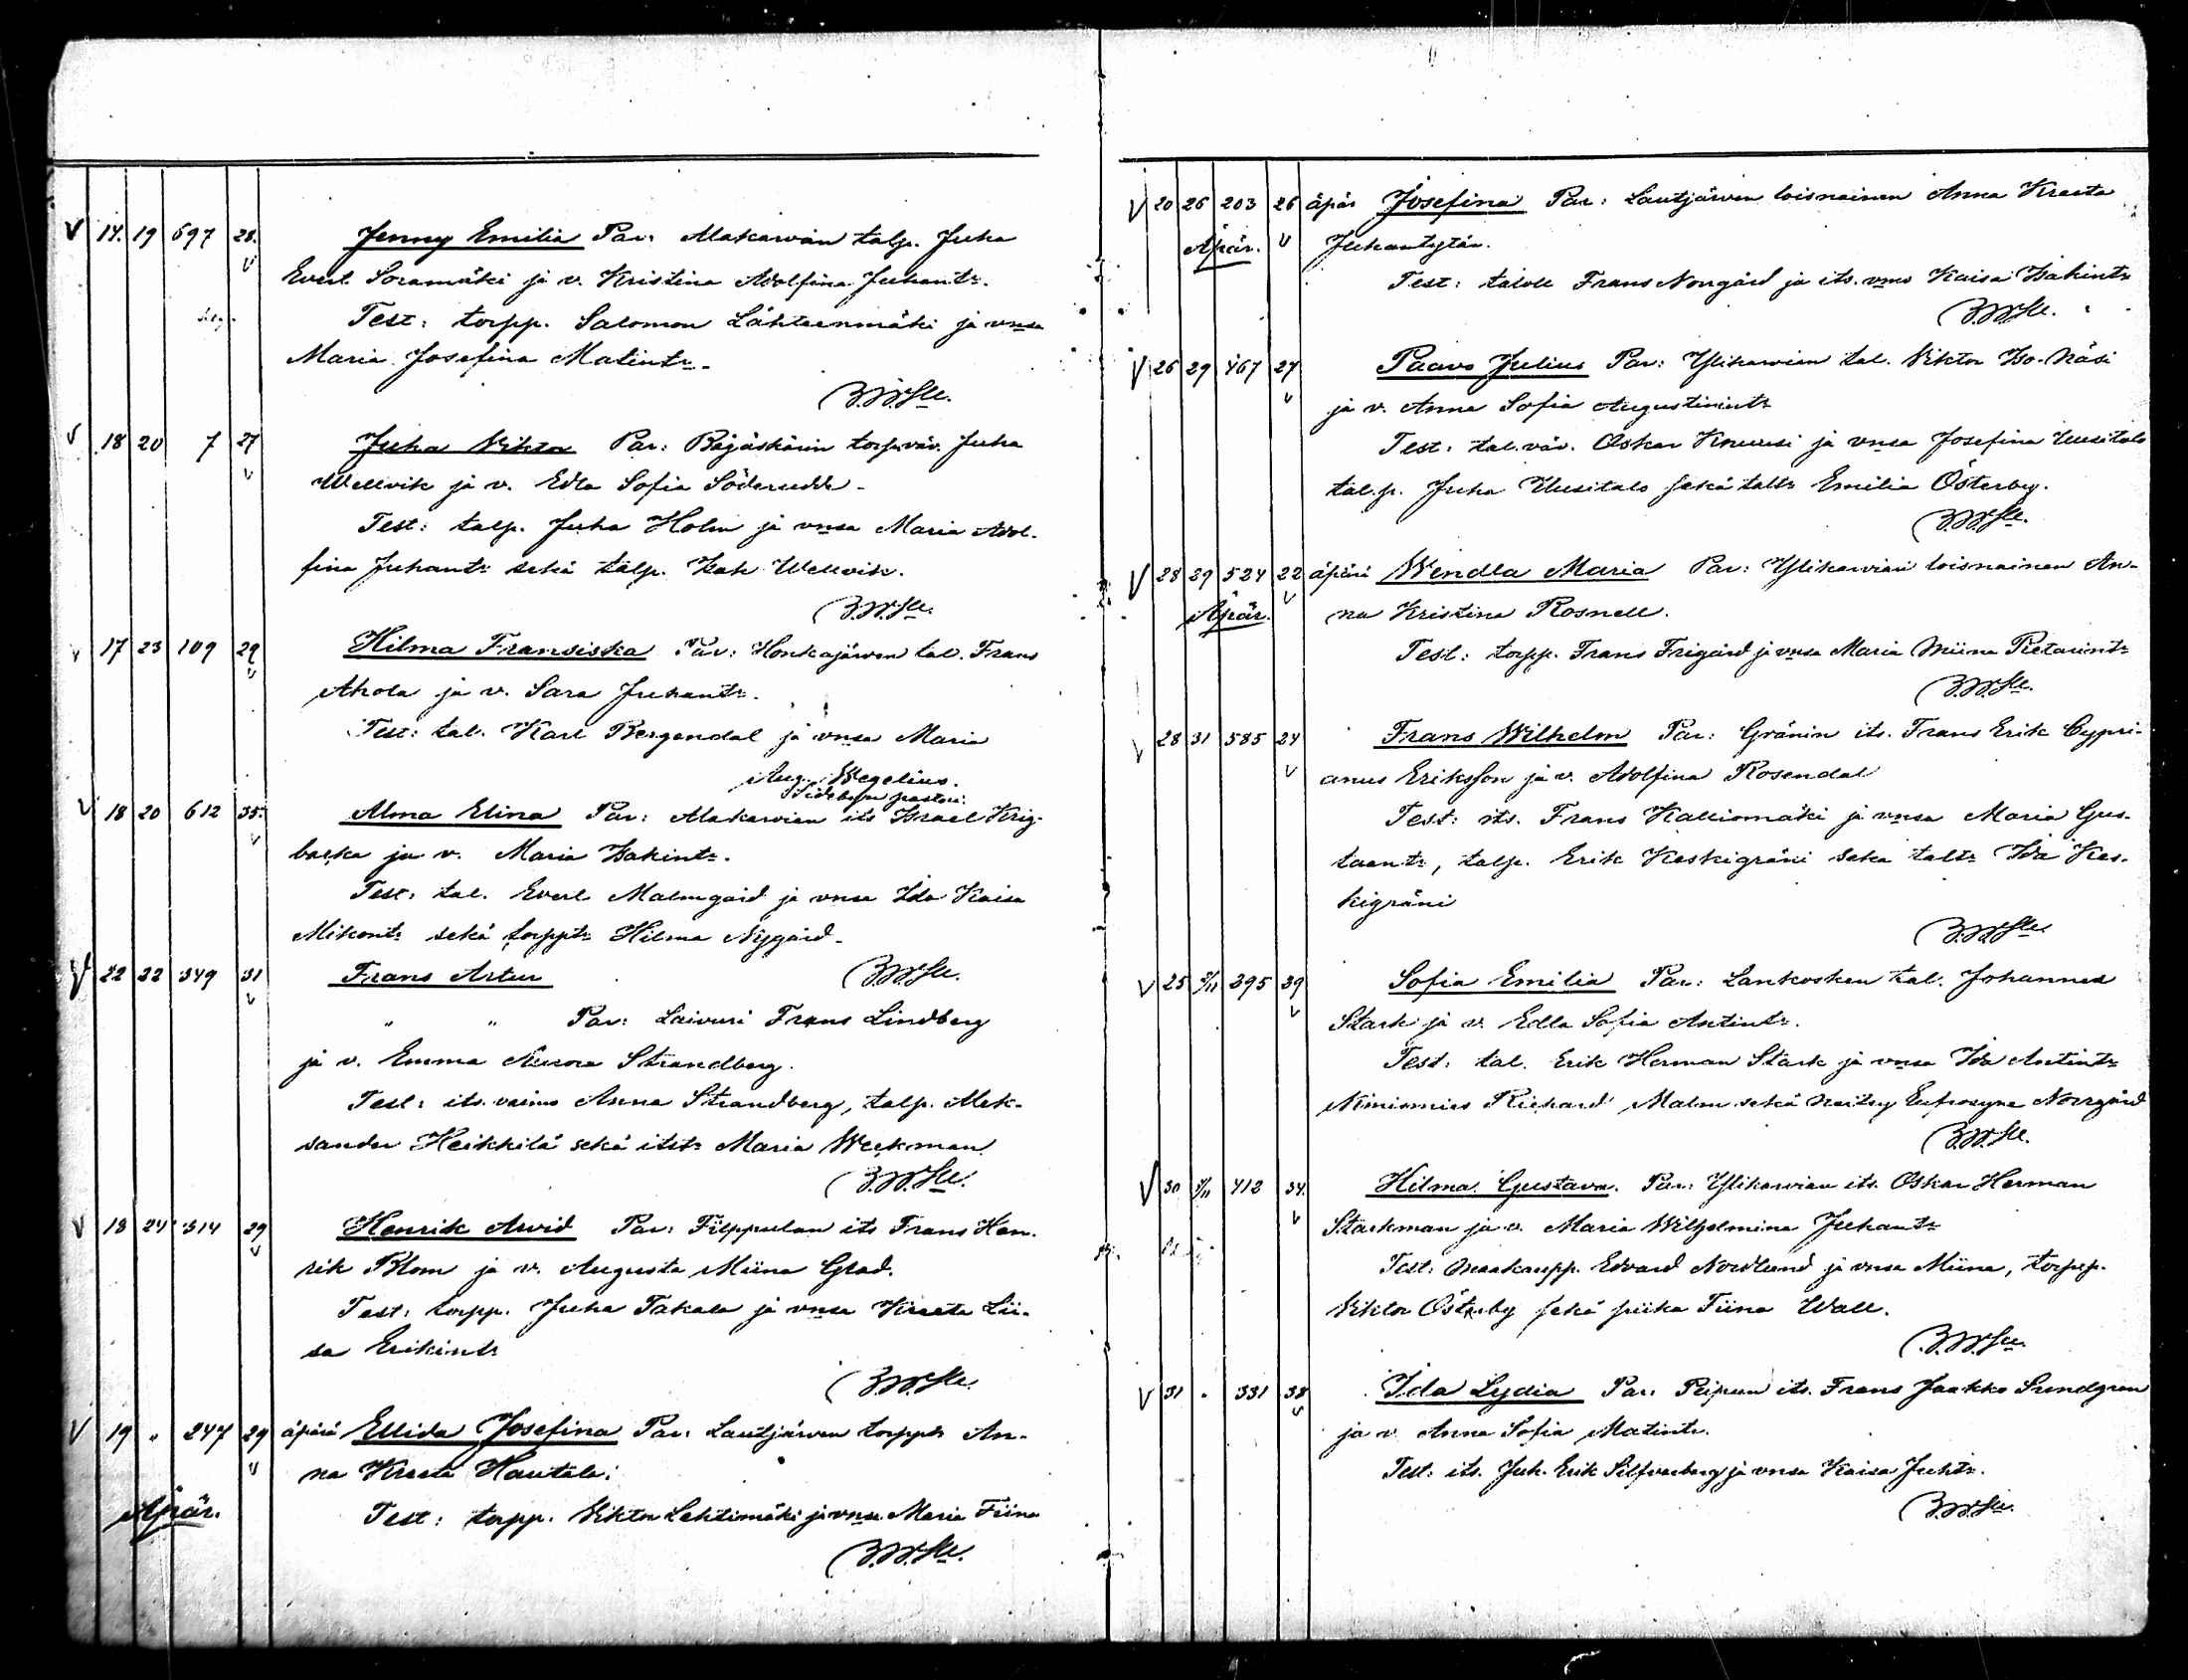 V 14. 19 697 28. Jenny Emilia Par: Alakarwian talp. Juha
V Evert Soramäki ja v. Kristina Adolfina Juhant:.
Test: torpp. Salomon Lähteenmäki ja vnsa
Maria Josefina Matint:.
V 18 20 7 27 Juha Viktor Par: torp.väv. Juha
V Wellvik ja v. Edla Sofia Söderudd.
Test: talp. Juha Holm ja vnsa Maria Adol-
fina Juhant: sekä talp. Isak Wellvik.
V 17 23 109 29 Hilma Fransiska Par: Honkajärwen tal. Frans
V Ahola ja v. Sara Juhant:.
Test: tal. Karl Bergendal ja vnsa Maria
Aug. Wegelius.
Sideby'n pastori.
V 18 20 612 35. Alma Elina Par: Alakarwian its Israel Krig-
V baska ja v. Maria Isakint:.
Test: tal. Evert Malmgård ja vnsa Ida Kaisa
Mikont: sekä torppt: Hilma Nygård.
V 22 22 349 31 Frans Artur
V " " Par: Laivuri Frans Lindberg
ja v. Emma Aurora Strandberg.
Test: its. vaimo Anna Strandberg, talp. Alek-
sander Heikkilä sekä itst: Maria Weckman.
V 18 24 314 29 Henrik Arvid Par: Filppulan its Frans Hen-
V rik Blom ja v. Augusta Miina Glad.
Test: torpp. Juha Takala ja vnsa Kreeta Lii-
sa Erikint:
V 19 " 247 29 äpärä Ellida Josefina Par: Lautjärwen torppt: An-
V na Kreeta Hautala.
Äpär.
Test: torpp. Viktor Lehtimäki ja vnsa Maria Fiina
V 20 26 203 26 äpär Josefina Par: Lautjärwen loisnainen Anna Kreeta
Äpär. V Juhantytär.
Test: taloll Frans Norrgård ja its. vmo Kaisa Isakint:
V 26 29 467 27 Paavo Julius Par: Ylikarwian tal. Viktor Iso-Näsi
V ja v. Anna Sofia Augustinint:
Test: tal.väv. Oskar Knuusi ja vnsa Josefina Uusitalo
tal.p. Juha Uusitalo sekä talt: Emilia Österby.
V 28 29 524 22 äpärä Wendla Maria Par: Ylikarwian loisnainen An-
V Äpär. na Kristina Rosnell.
Test: torpp. Frans Frigård ja vnsa Maria Miina Pietarint:
V 28 31 585 24 Frans Wilhelm Par: Gränin its. Frans Erik Cypri-
V anus Eriksson ja v. Adolfina Rosendal
Test: its. Frans Kalliomäki ja vnsa Maria Gus-
taant:, talp. Erik Keskigräni sekä talt: Ida Kes-
kigräni
V 25 2/11 395 39 Sofia Emilia Par: Lankosken tal. Johannes
V Stark ja v. Edla Sofia Antint:.
Test: tal. Erik Herman Stark ja vnsa Ida Antint:
Nimismies Richard Malm sekä neitsy Eufrosyne Norrgård
V 30 412 34. Hilma Gustava. Par: Ylikarwian its. Oskar Herman
V Starkman ja v. Maria Wilhelmina Juhant:
Test: maakaupp. Edvard Nordlund ja vnsa Miina, torpp.
Viktor Österby sekä piika Tiina Wall.
V 31 . 331 38 Ida Lydia Par: its. Frans Jaakko Sundgren
V ja v. Anna Sofia Matint:.
Test: its. Juh. Erik Silfverberg ja vnsa Kaisa Juht:.